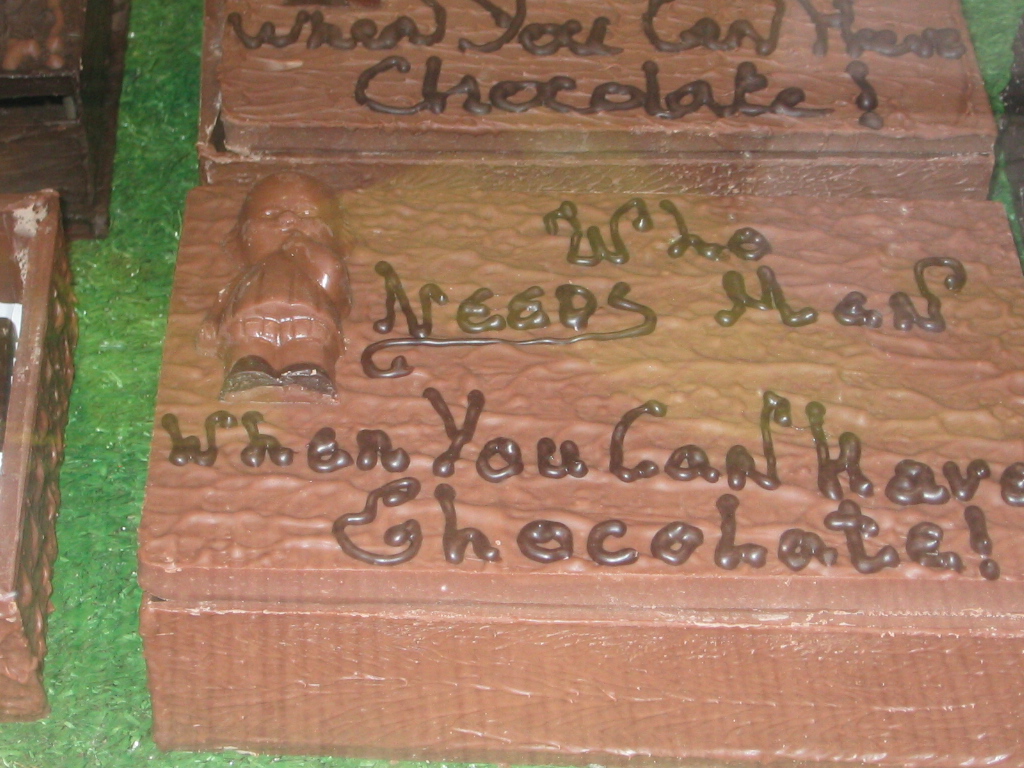 When You Can Have
Chocolate!
Who
Needs Men
When You Can Have
Chocolate!